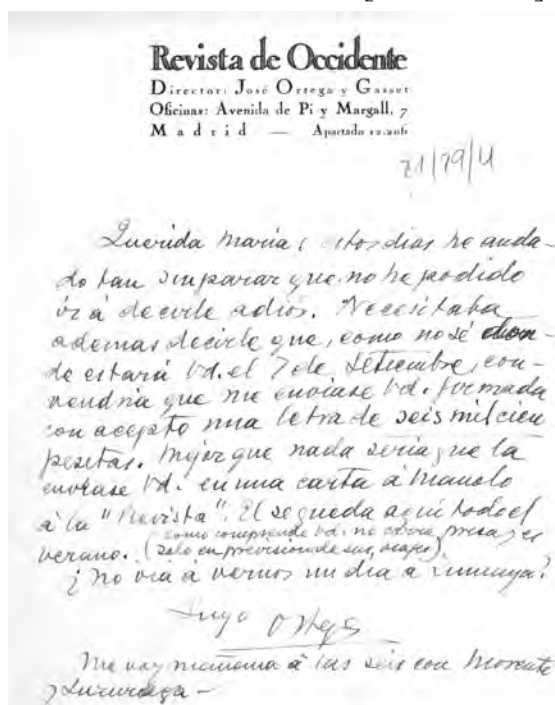 Revista de Occidente
Director: José Ortega y Gasset
Oficinas: Avenida de Pi y Margall, 7
Madrid — Apartado 12.206
Querida María: estos dias he anda-
do tan sin parar que no he podido
ir á decirle adios. Necesitaba
ademas decirle que, como no sé don-
de estará Vd. el 7 de Setiembre, con-
vendria que me enviase Vd. firmada
con acepto una letra de seis mil cien
pesetas. Mejor que nada seria que la
enviase Vd. en una carta á Manolo
á la "Revista". El se queda aqui todo el
verano. (como comprende Vd. no corria prisa, es
solo en prevision de sus viajes).
¿No irá á vernos un dia a Zumaya?
Suyo Ortega
Me voy mañana á las seis con Morente
y